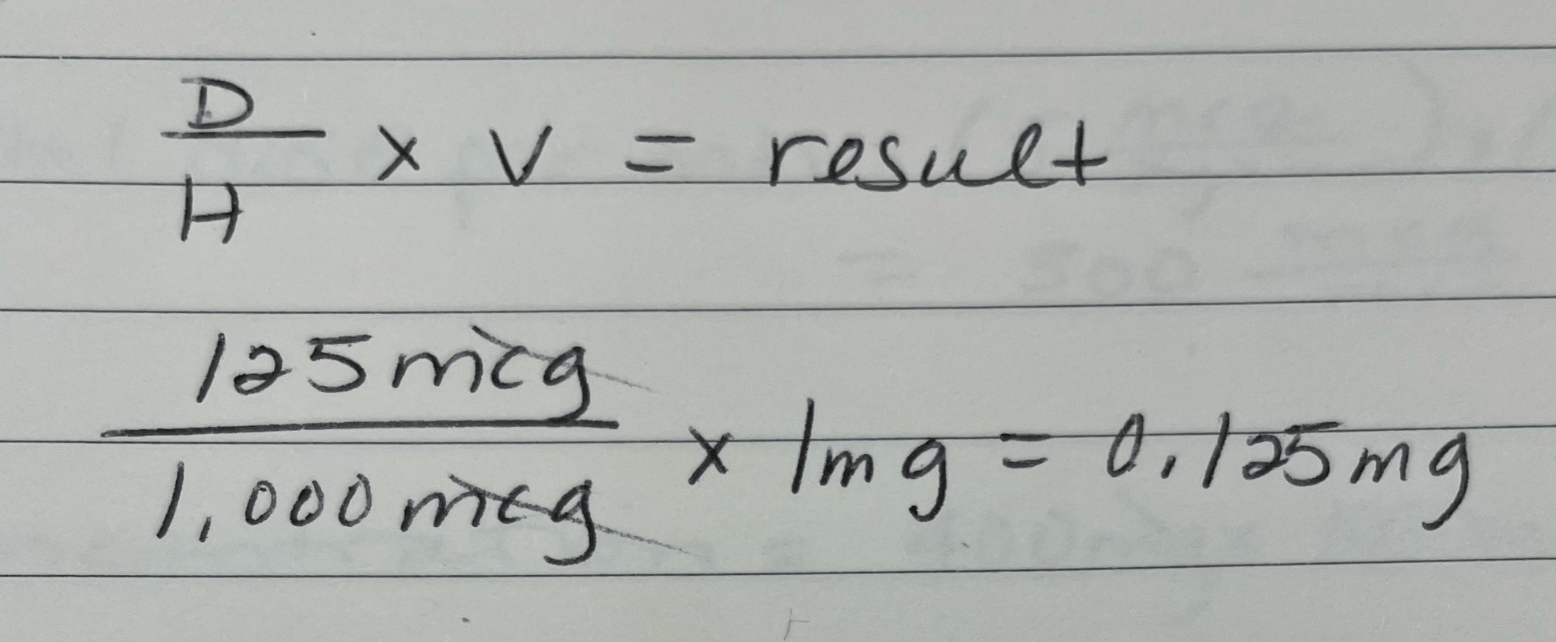 D
H × V = result
125 mcg
1,000 mcg × 1mg = 0.125mg